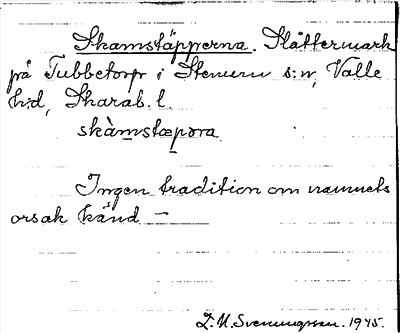 Skamstäpperna. Slåttermark
på Tubbetorp i Stenum s:n, Valle
h:d, Skarab. l.
skàmstæpəra
Ingen tradition om namnets
orsak känd —
L. M. Svenungsson. 1945.